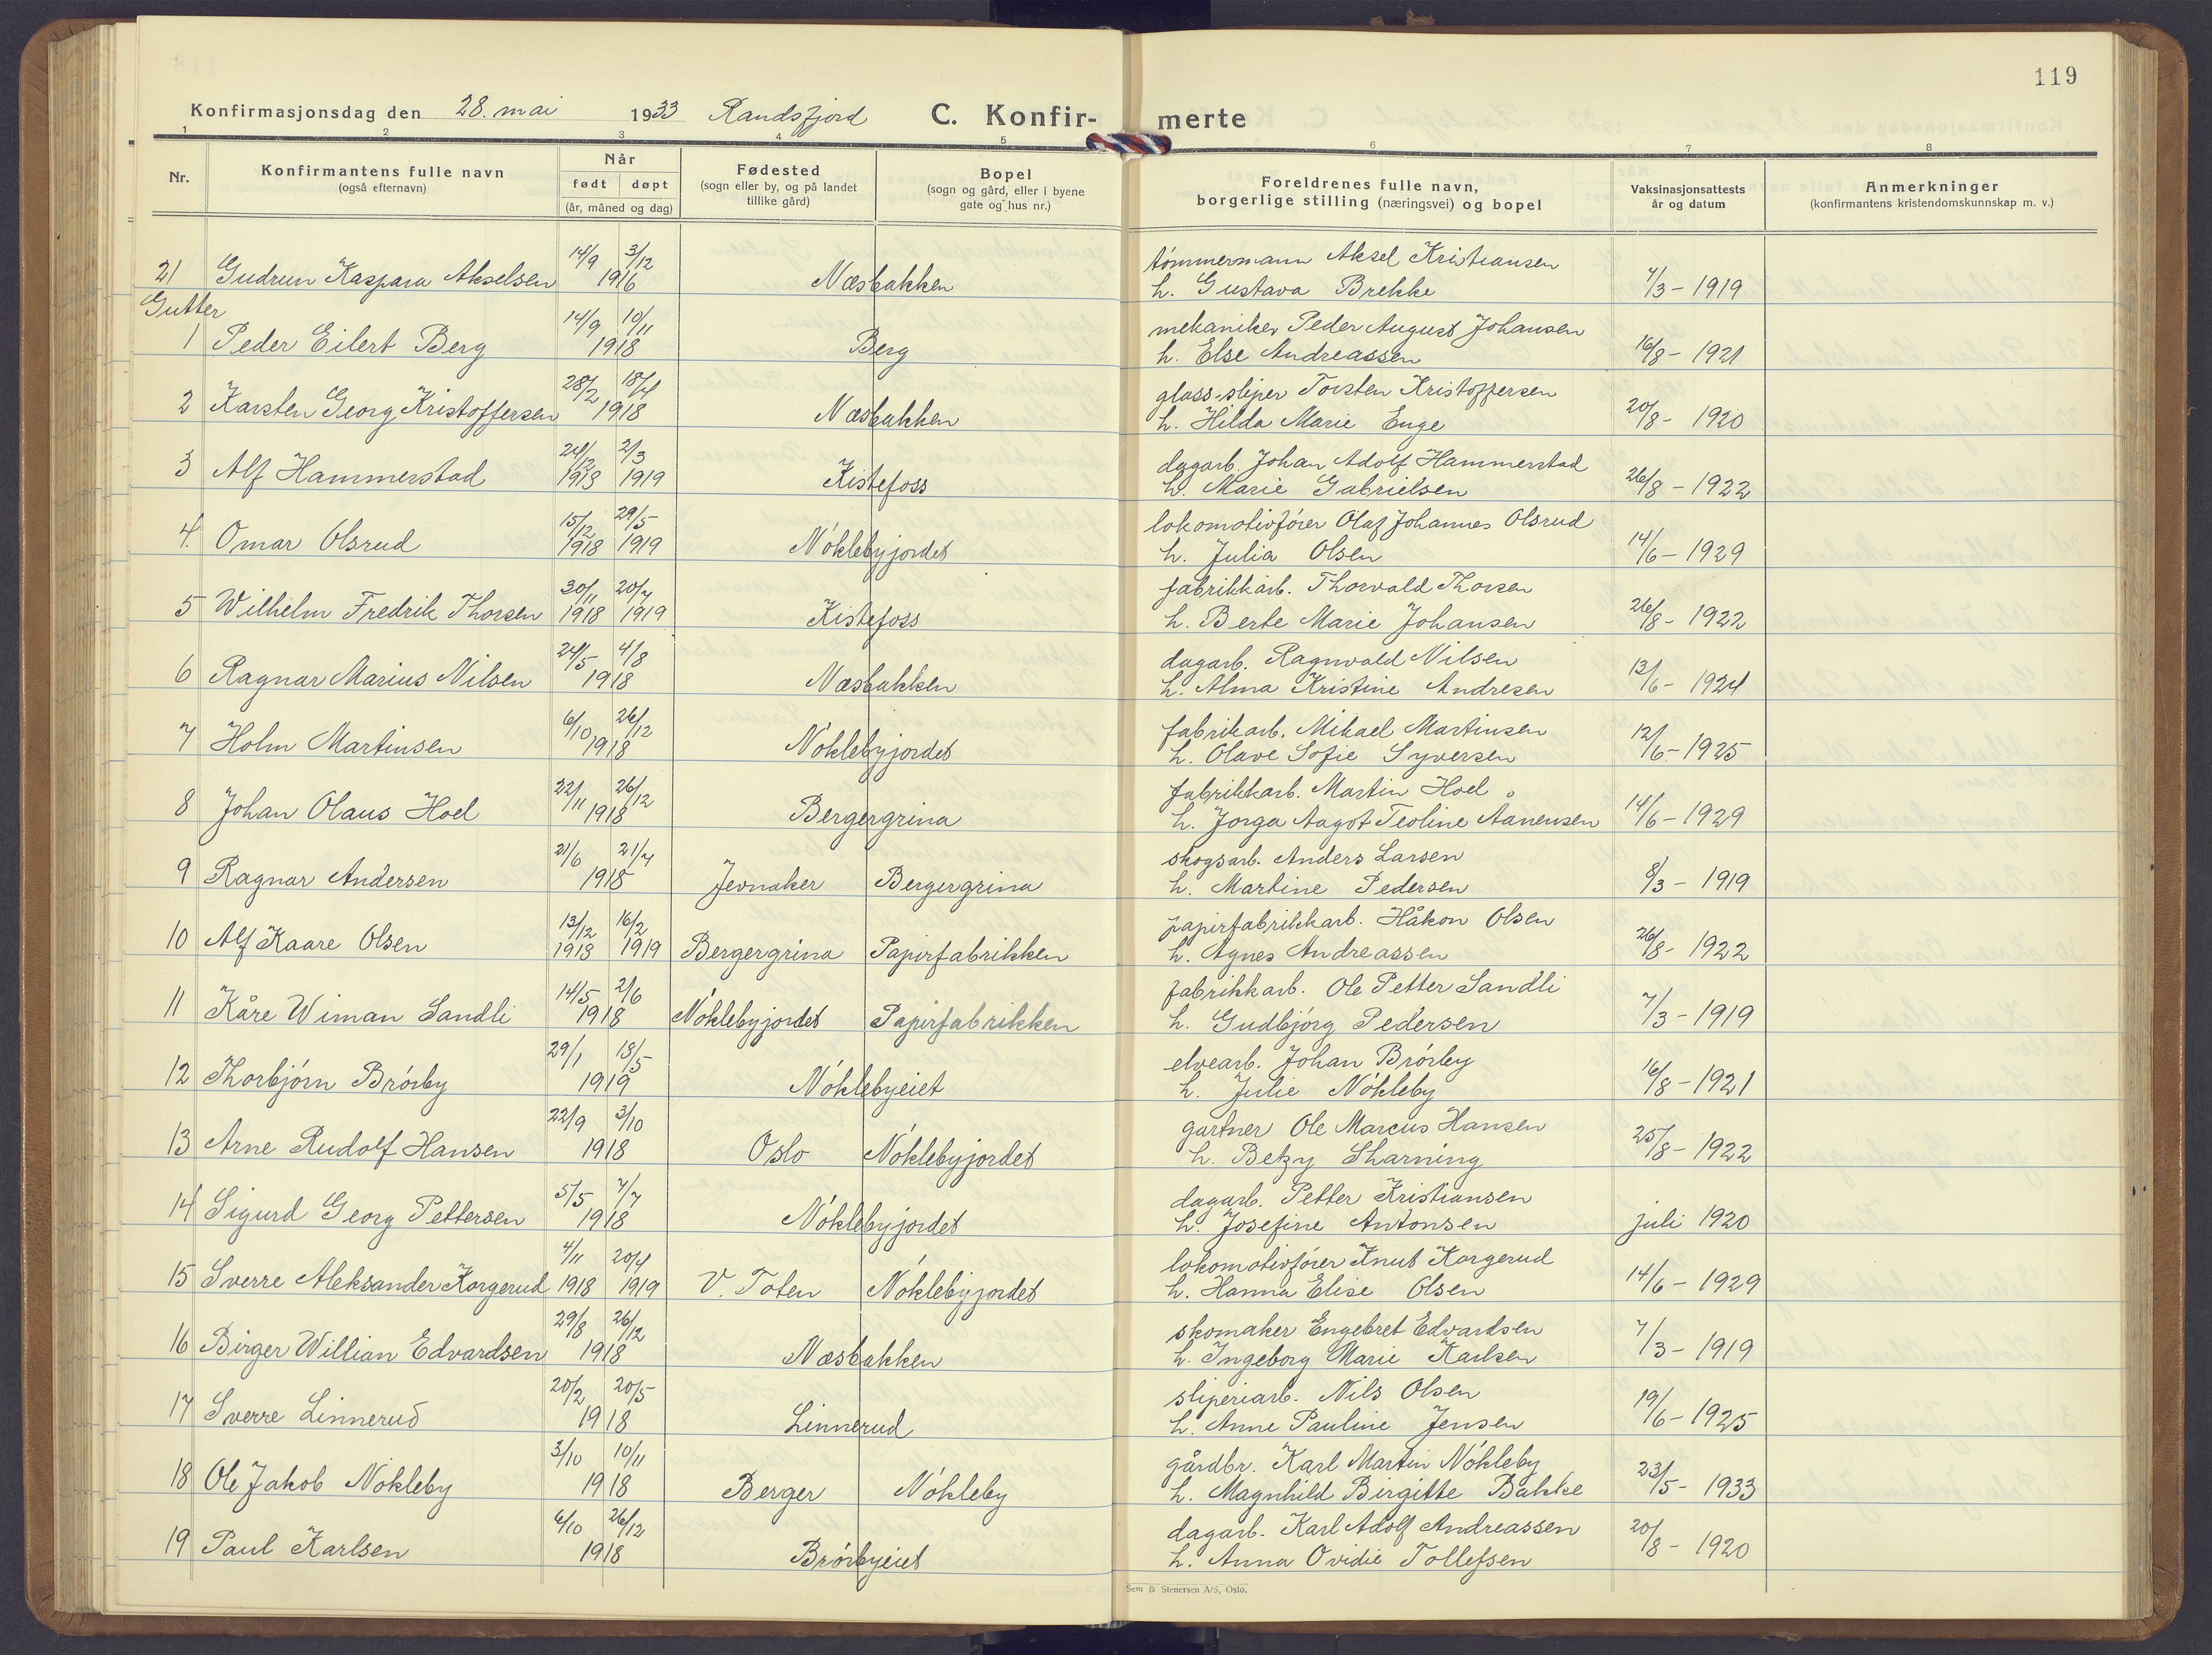 119
Konfirmasjonsdag den 28. mai 1933 Randsfjord C. Konfir- merte
1 2 3 4 5 6 7 8
Nr. Konfirmantens fulle navn (også efternavn) Når født døpt (år, måned og dag) Fødested (sogn eller by, og på landet tillike gård) Bopel (sogn og gård, eller i byene gate og hus nr.) Foreldrenes fulle navn, borgerlige stilling (næringsvei) og bopel Vaksinasjonsattests år og datum Anmerkninger (konfirmantens kristendomskunnskap m. v.)
21 Gudrun Kaspara Akselsen 14/9 3/12 1916 Næsbakken tømmermann Aksel Kristiansen
h. Gustava Brekke 7/3 - 1919
Gutter
1 Peder Eilert Berg 14/9 10/11 1918 Berg mekaniker Peder August Johansen
h. Else Andreassen 16/8 - 1921
2 Karsten Georg Kristoffersen 28/2 18/4 1918 Næsbakken glass-sliper Torsten Kristoffersen
h. Hilda Marie Enge 20/8 - 1920
3 Alf Hammerstad 24/12 1918 2/3 1919 Kistefoss dagarb. Johan Adolf Hammerstad
h. Marie Gabrielsen 26/8 - 1922
4. Omar Olsrud 15/12 1918 29/5 1919 Nøklebyjordet lokomotivfører Olaf Johannes Olsrud
h. Julia Olsen 14/6 - 1929
5 Wilhelm Fredrik Thorsen 30/11 1918 20/7 1919 Kistefoss fabrikkarb. Thorvald Thorsen
h. Berte Marie Johansen 26/8 - 1922
6 Ragnar Marius Nilsen 24/5 4/8 1918 Næsbakken dagarb. Ragnvald Nilsen
h. Alma Kristine Andresen 13/6 - 1924
7 Holm Martinsen 6/10 26/12 1918 Nøklebyjordet fabrikarb. Mikael Martinsen
h. Olave Sofie Syversen 12/6 - 1925
8 Johan Olaus Hoel 22/11 26/12 1918 Bergergrina fabrikkarb. Martin Hoel
h. Jorga Aagot Teoline Aanensen 14/6 - 1929
9 Ragnar Andersen 21/6 21/7 1918 Jevnaker Bergergrina skogsarb. Anders Larsen
h. Martine Pedersen 8/3 - 1919
10 Alf Kaare Olsen 13/12 1918 16/2 1919 Bergergrina Papirfabrikken papirfabrikkarb. Håkon Olsen
h. Agnes Andreassen 26/8 - 1922
11 Kåre Wiman Sandli 14/5 2/6 1918 Nøklebyjordet Papirfabrikken fabrikkarb. Ole Petter Sandli
h. Gudbjørg Pedersen 7/3 - 1919
12 Thorbjørn Brørby 29/1 18/5 1919 Nøklebyeiet elvearb. Johan Brørby
h. Julie Nøkleby 16/8 - 1921
13 Arne Rudolf Hansen 22/9 3/10 1918 Oslo Nøklebyjordet gartner Ole Marcus Hansen
h. Betzy Skarning 25/8 - 1922
14 Sigurd Georg Pettersen 5/5 7/7 1918 Nøklebyjordet dagarb. Petter Kristiansen
h. Josefine Antonsen juli 1920
15 Sverre Aleksander Korgerud 4/11 1918 20/4 1919 V. Toten Nøklebyjordet lokomotivfører Knut Korgerud
h. Hanna Elise Olsen 14/6 - 1929
16 Birger Willian Edvardsen 29/8 26/12 1918 Næsbakken skomaker Engebret Edvardsen
h. Ingeborg Marie Karlsen 7/3 - 1919
17 Sverre Linnerud 20/2 20/5 1918 Linnerud sliperiarb. Nils Olsen
h. Anne Pauline Jensen 19/6 - 1925
18 Ole Jakob Nøkleby 3/10 10/11 1918 Berger Nøkleby gårdbr. Karl Martin Nøkleby
h. Magnhild Birgitte Bakke 23/5 - 1933
19 Paul Karlsen 6/10 26/12 1918 Brørbyeiet dagarb. Karl Adolf Andreassen
h. Anna Ovidie Tollefsen 20/8 - 1920
Sem & Stenersen A/S, Oslo.